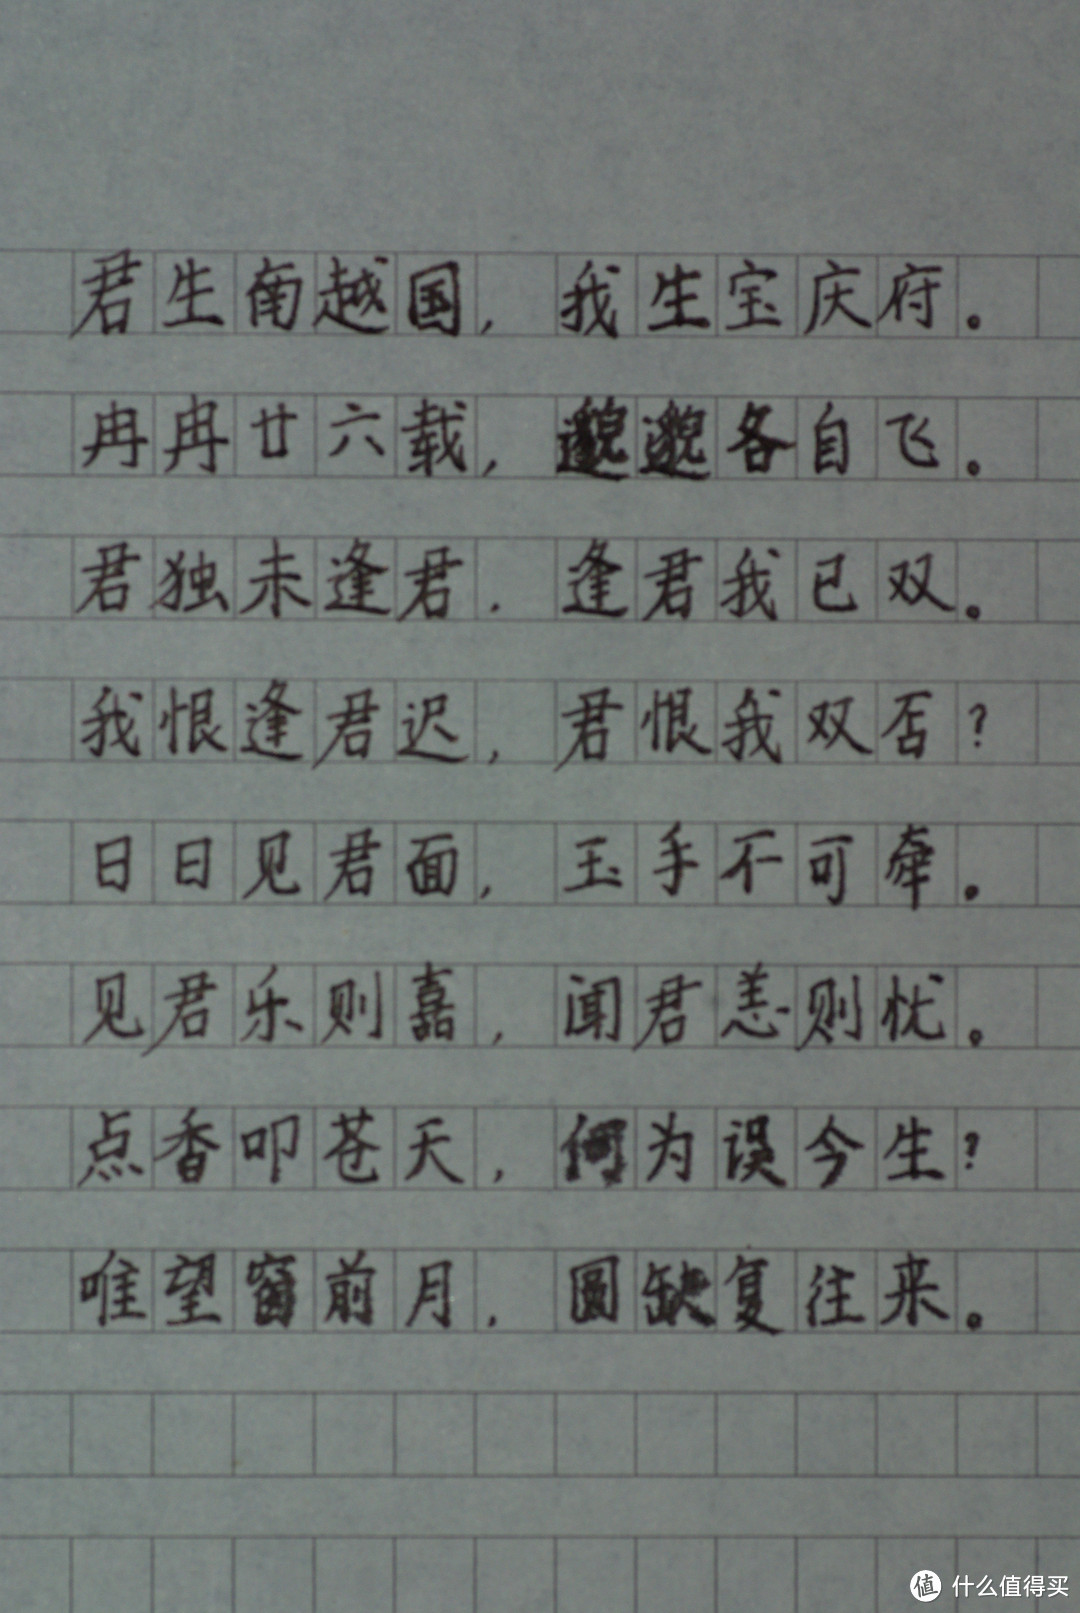 君生南越国，我生宝庆府。
冉冉廿六载，邈邈各自飞。
君独未逢君．逢君我已双。
我恨逢君迟，君恨我双否？
日日见君面，玉手不可牵。
见君乐则嘉，闻君恙则忧。
点香叩苍天，何为误今生？
唯望窗前月，圆缺复往来。
值 什么值得买